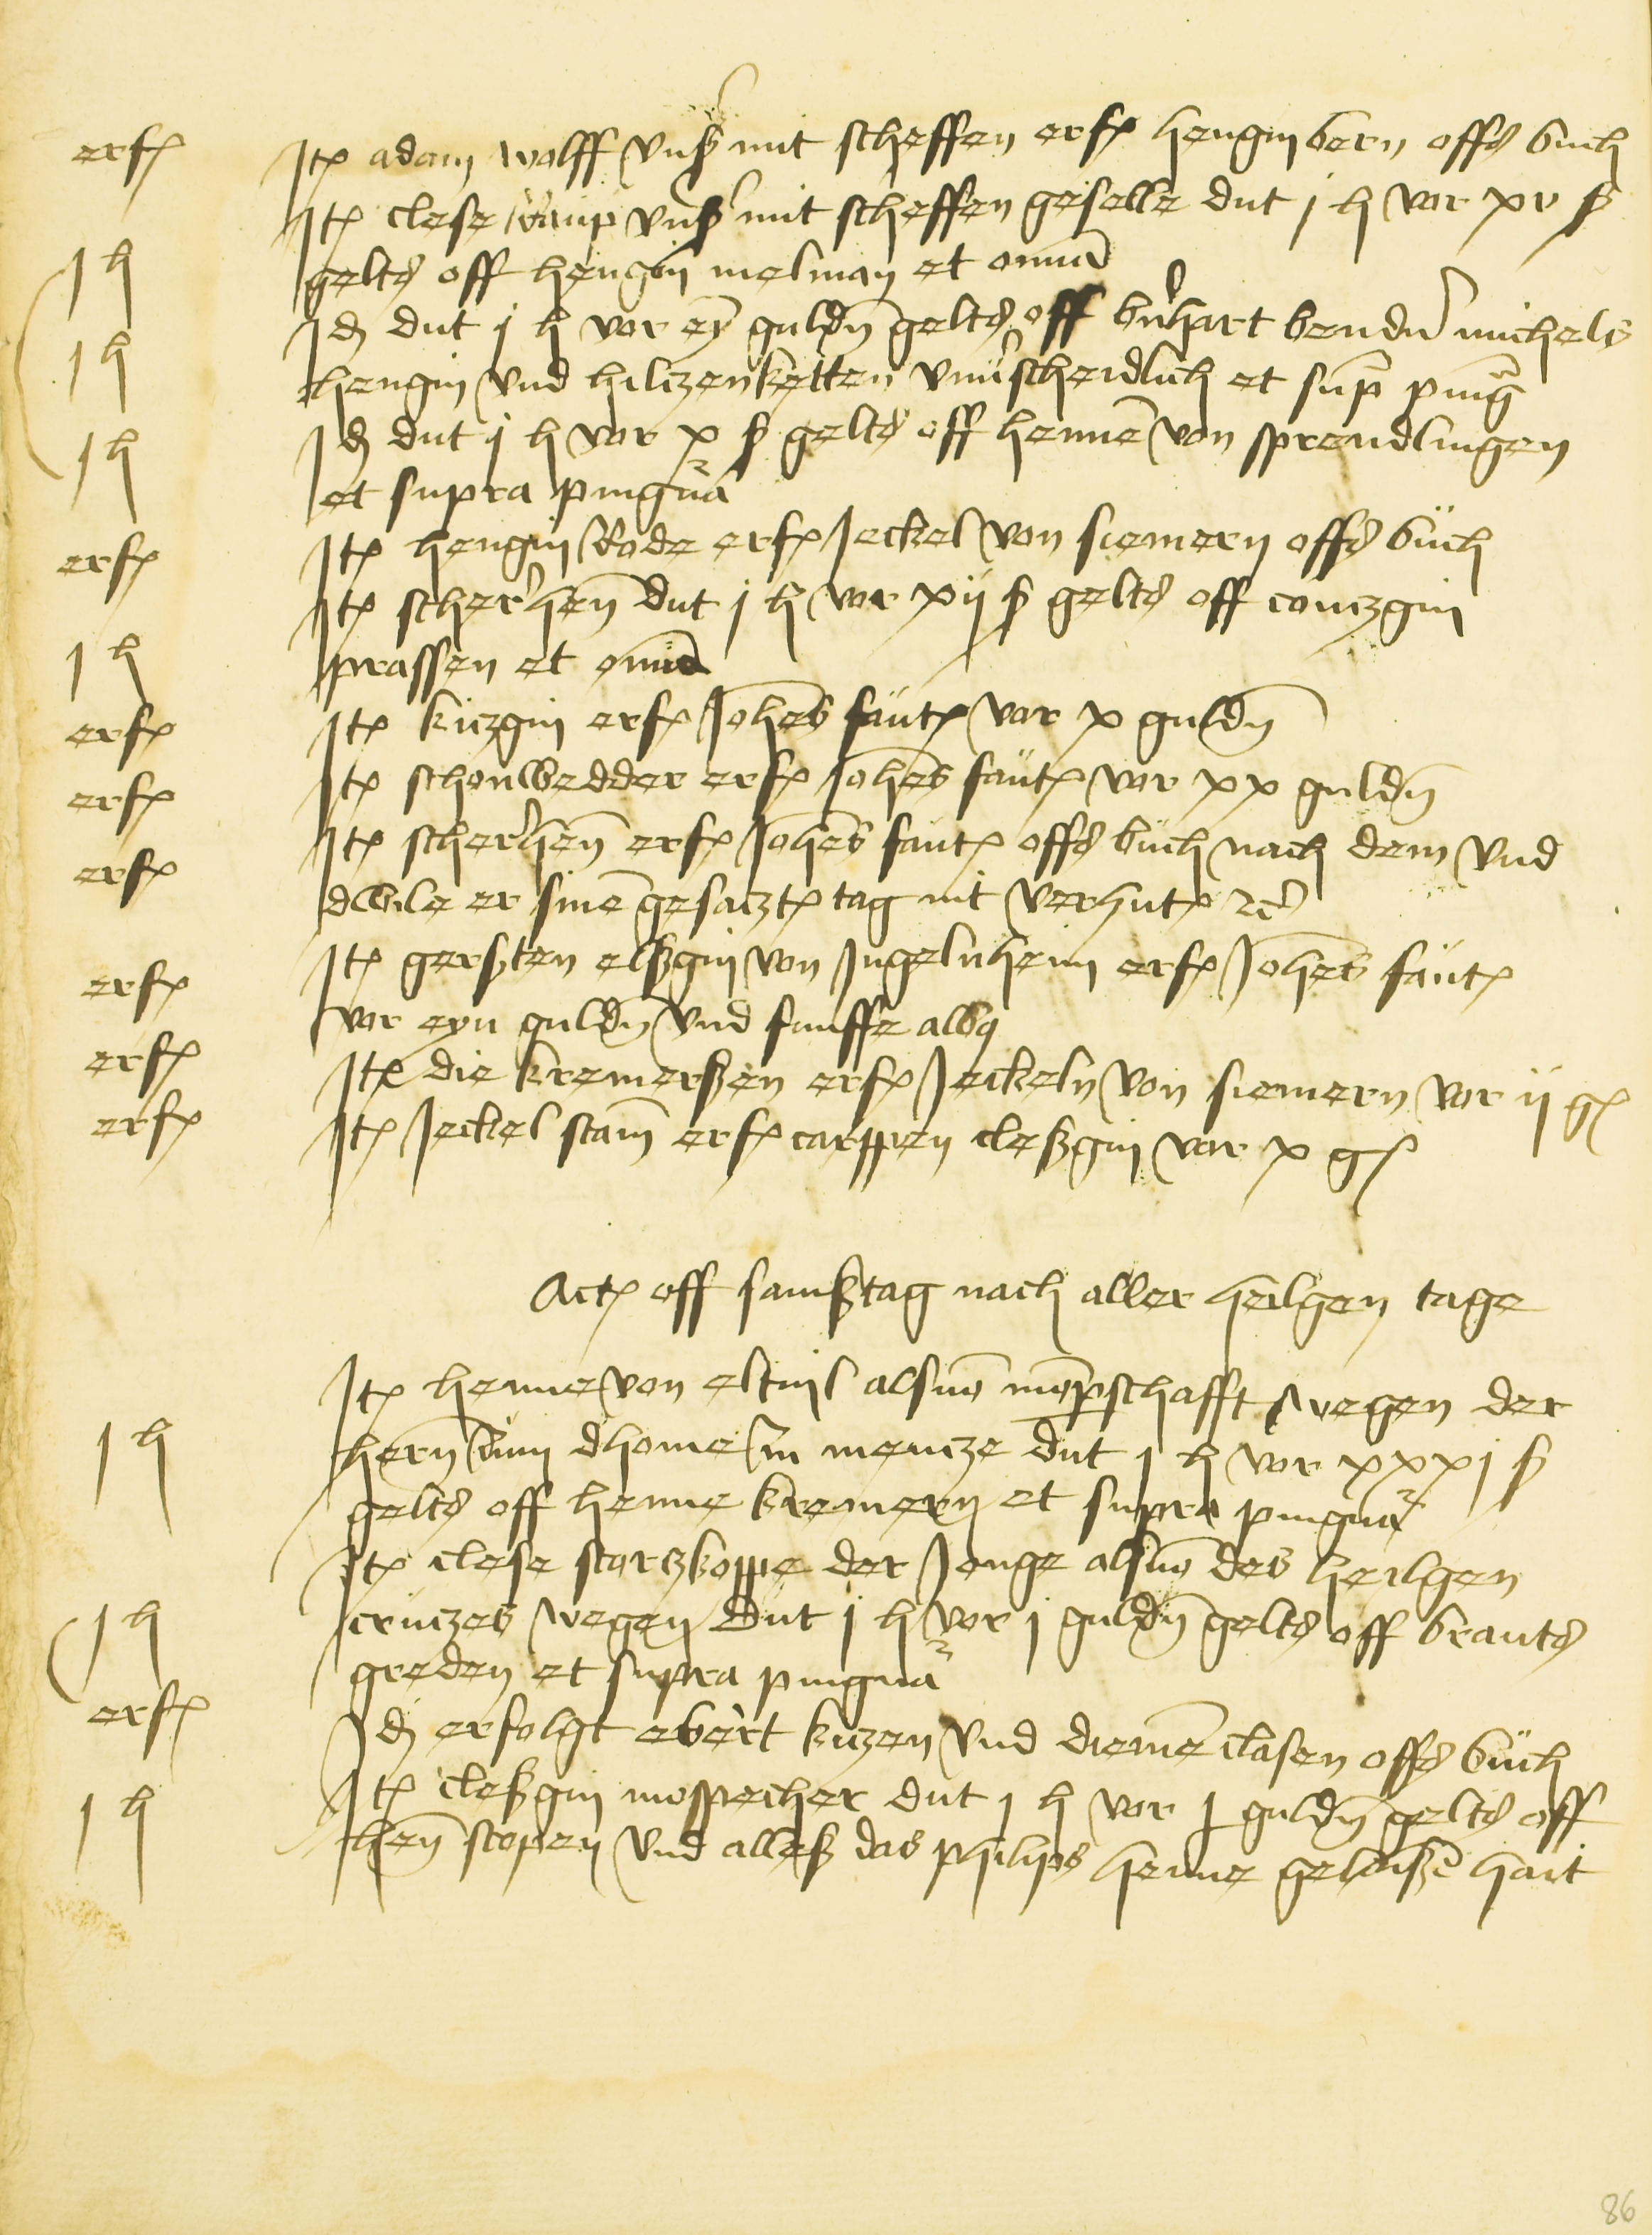 erf
It adam wolff unß mit scheffen erf hengin bern offs buch
It clese raup unß mit scheffen geselle dut j h vor xv ß
j h
gelts off hengin melman et omnia
Id dut j h vor ey guldin gelts off bernhart bender michels
j h
hengin und hilczenketten unverscheidlich et supra pingnora
Id dut j h vor x ß gelts off henne von sprendlingen
j h
et supra pingnora
erf
It hengin Rode erf Jeckel von siemern offs büch
It scherhen dut j h vor xij ß gelts off conczgin
j h
prassen et omnia
erf
It kiczgin erf Johes faut vor x guldin
erf
It schonwedder erf Johes faut vor xx guldin
erf
It scherhen erf Johes faut offs buch nach dem und
dwile er sine gesaczt tag nit verhut etc
erf
It gerßten elßgin von Ingelnheim erf Johes faut
vor eyn guldin und funffe albq
erf
It die kremerßen erf Jeckeln von siemern vor ij gl
erf
It Jeckel stam erf carppen cleßgin vor x gl
Act off samßtag nach aller heilgen tage
It henne von eltvil als von momperschafft wegen der
j h
hern zum dhome zu mencze dut j h vor xxxj ß
gelts off henne kremern et supra pingnora
It clese starczkoppe der Jonge als von des heilgen
j h
cruczes wegen dut j h vor j guldin gelts off brants
greden et supra pingnora
erf
Id erfolgt ebert kiczen und dieme clasen offs büch
j h
It cleßgin mospecher dut j h vor j guldin gelts off
hen stopen und alleß das philips henne gelaißen hait
86